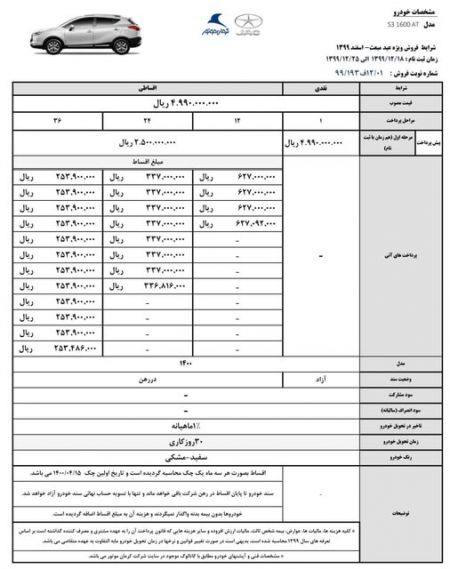 مشخصات خودرو
مدل S3 1600 AT
کرمان موتور
JAC
شرایط فروش ویژه عید مبعث - اسفند ۱۳۹۹
زمان ثبت نام : ۱۳۹۹/۱۲/۱۸ الی ۱۳۹۹/۱۲/۲۵
شماره نوبت فروش : ۱۲/۰۱ف۹۹/۱۹۳
شرایط نقدی اقساطی
قیمت مصوب ۴.۹۹۰.۰۰۰.۰۰۰ ریال
مراحل پرداخت ۱ ۱۲ ۲۴ ۳۶
پیش پرداخت مرحله اول (هم زمان با ثبت نام) ۴.۹۹۰.۰۰۰.۰۰۰ ریال ۲.۵۰۰.۰۰۰.۰۰۰ ریال
مبلغ اقساط
پرداخت های آتی -
۶۲۷.۰۰۰.۰۰۰ ریال ۳۳۷.۰۰۰.۰۰۰ ریال ۲۵۳.۹۰۰.۰۰۰ ریال
۶۲۷.۰۰۰.۰۰۰ ریال ۳۳۷.۰۰۰.۰۰۰ ریال ۲۵۳.۹۰۰.۰۰۰ ریال
۶۲۷.۰۰۰.۰۰۰ ریال ۳۳۷.۰۰۰.۰۰۰ ریال ۲۵۳.۹۰۰.۰۰۰ ریال
۶۲۷.۰۹۲.۰۰۰ ریال ۳۳۷.۰۰۰.۰۰۰ ریال ۲۵۳.۹۰۰.۰۰۰ ریال
- ۳۳۷.۰۰۰.۰۰۰ ریال ۲۵۳.۹۰۰.۰۰۰ ریال
- ۳۳۷.۰۰۰.۰۰۰ ریال ۲۵۳.۹۰۰.۰۰۰ ریال
- ۳۳۷.۰۰۰.۰۰۰ ریال ۲۵۳.۹۰۰.۰۰۰ ریال
- ۳۳۶.۸۱۶.۰۰۰ ریال ۲۵۳.۹۰۰.۰۰۰ ریال
- - ۲۵۳.۹۰۰.۰۰۰ ریال
- - ۲۵۳.۹۰۰.۰۰۰ ریال
- - ۲۵۳.۹۰۰.۰۰۰ ریال
- - ۲۵۳.۴۸۶.۰۰۰ ریال
مدل ۱۴۰۰
وضعیت سند آزاد دررهن
سود مشارکت -
سود انصراف (سالیانه) -
تاخیر در تحویل خودرو ۱٪ماهیانه
زمان تحویل خودرو ۳۰روزکاری
رنگ خودرو سفید-مشکی
توضیحات .
اقساط بصورت هر سه ماه یک چک محاسبه گردیده است و تاریخ اولین چک ۱۴۰۰/۰۴/۱۵ می باشد.
سند خودرو تا پایان اقساط در رهن شرکت باقی خواهد ماند و تنها با تسویه حساب نهائی سند خودرو آزاد خواهد شد.
خودروها بدون بیمه بدنه واگذار نمیگردند و هزینه آن به مبلغ اقساط اضافه گردیده است.
* کلیه هزینه ها، مالیات ها، عوارض، بیمه شخص ثالث، مالیات ارزش افزوده و سایر هزینه هایی که قانون پرداخت آن را به عهده مشتری و مصرف کننده گذاشته است بر اساس
تعرفه های سال ۱۳۹۹ محاسبه شده است. بدیهی است در صورت تغییر قوانین و نرخها در زمان تحویل خودرو مابه التفاوت به عهده متقاضی می باشد.
* مشخصات فنی و آپشنهای خودرو مطابق با کاتالوگ موجود در سایت شرکت کرمان موتور می باشد.